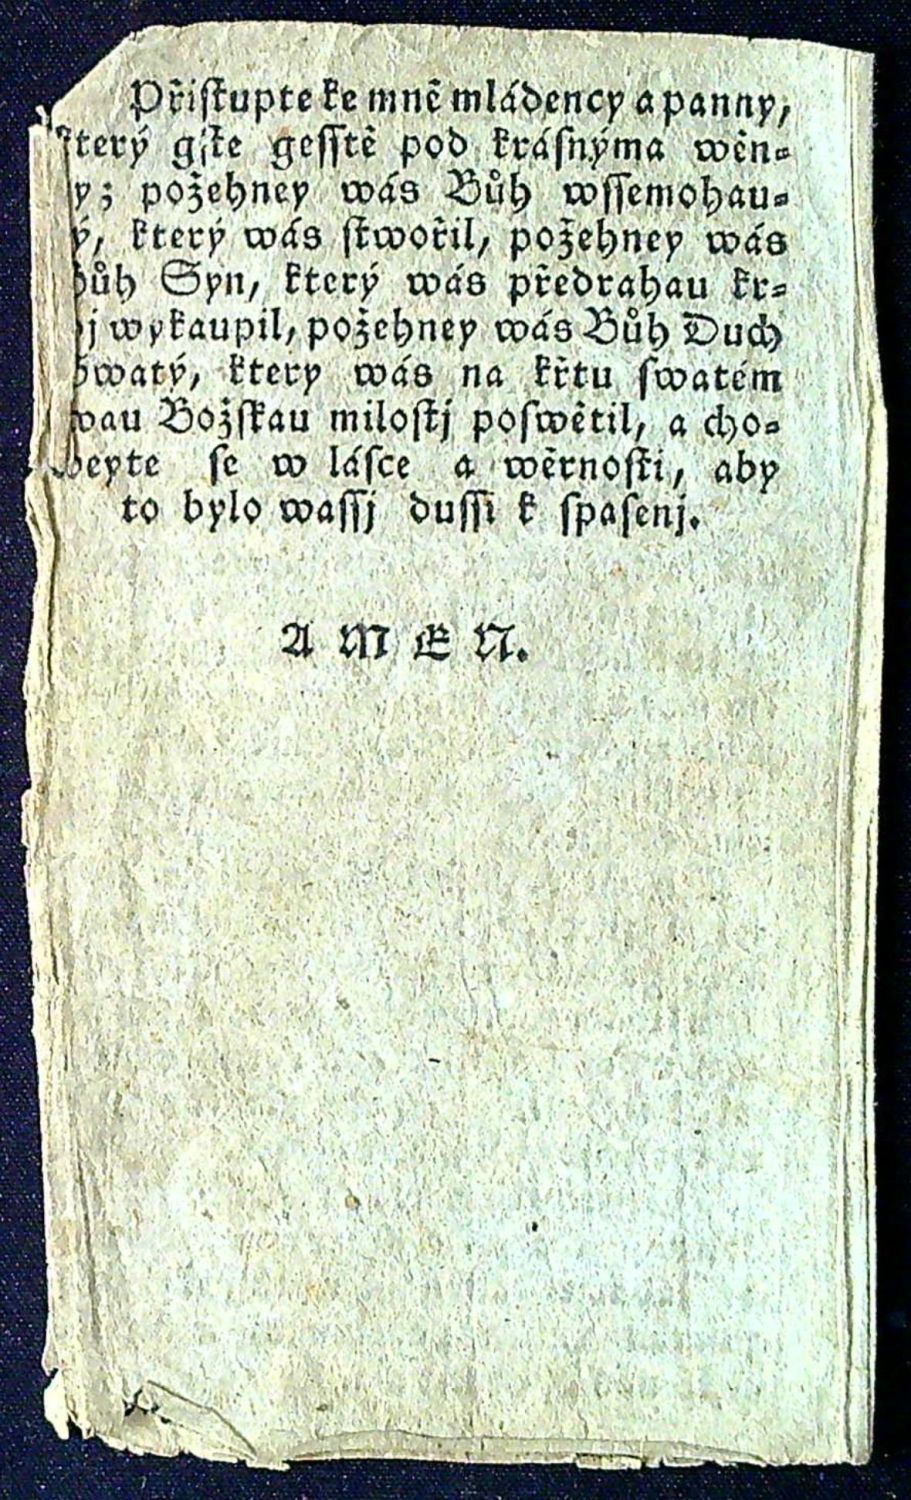 Přistupte ke mně mládency a panny,
který giſte geſſtě pod kráſnýma wěn-
y; požehney wás Bůh wſſemohau-
ý, který wás ſtwořil, požehney wás
Bůh Syn, který wás předrahau kr-
j wykaupil, požehney wás Bůh Duch
Swatý, ktery wás na křtu ſwatém
wau Božſkau miloſtj poſwětil, a cho-
weyte ſe w láſce a wěrnoſti, aby
to bylo waſſj duſſi k ſpaſenj.
AMEN.